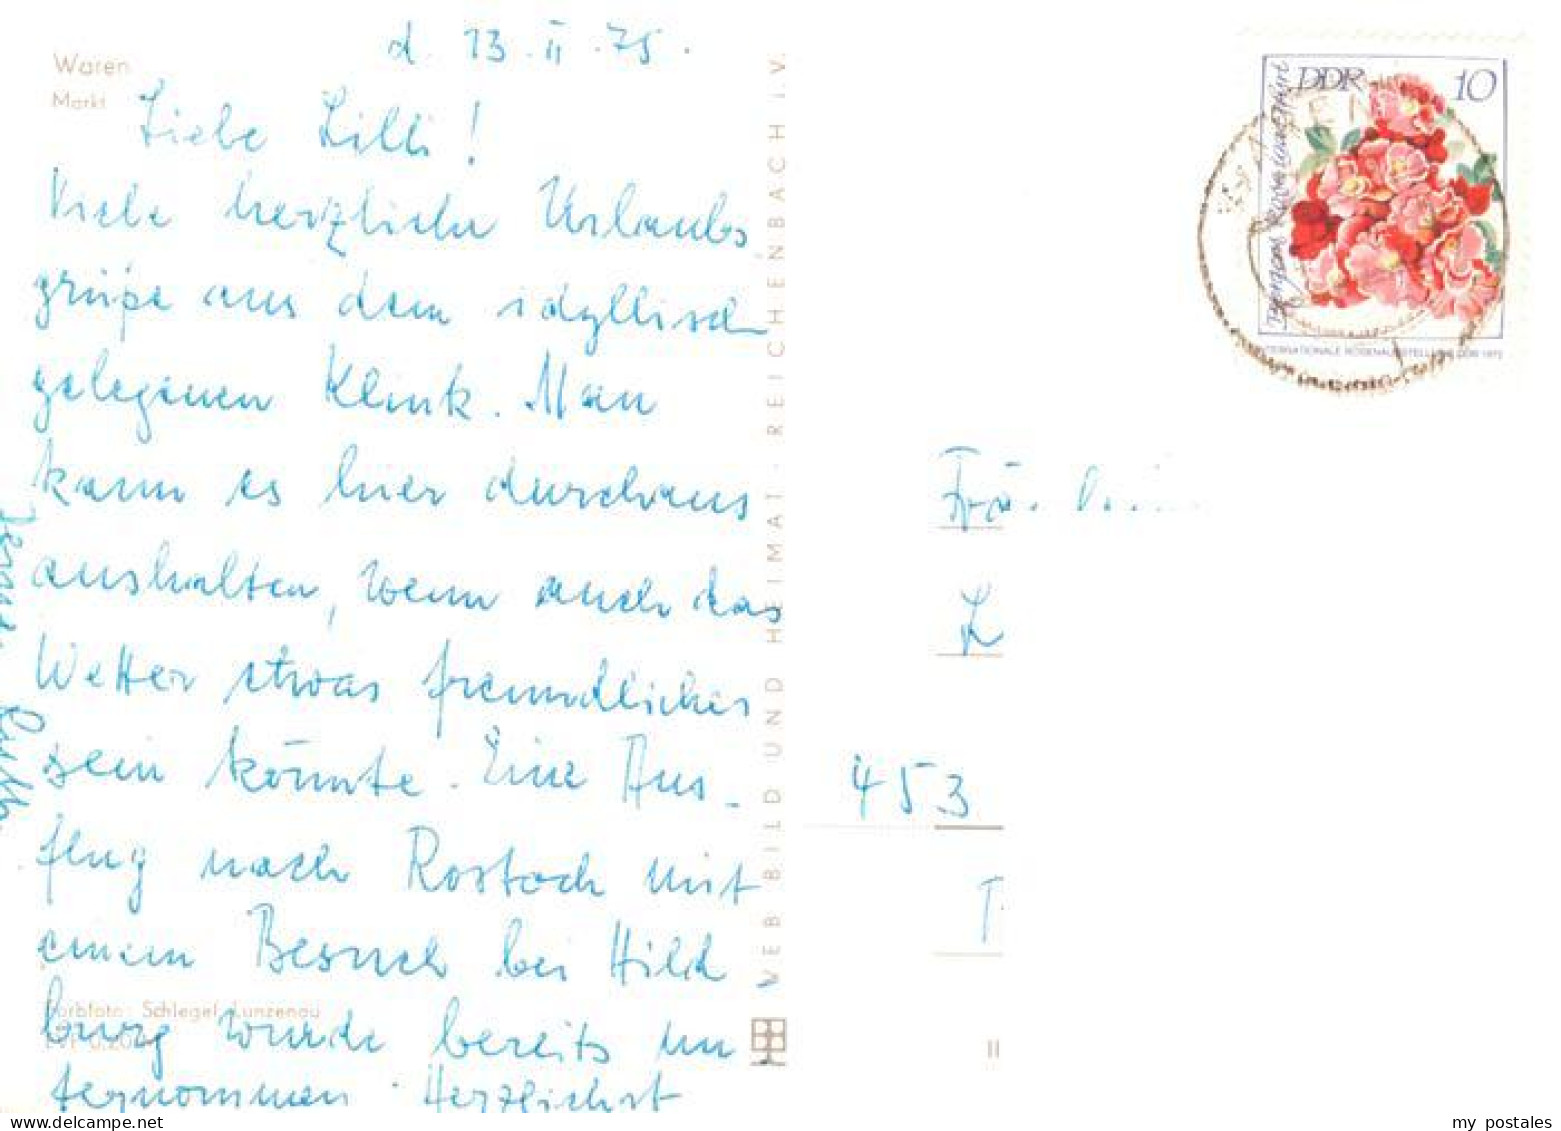 Waren
Markt
d. 13.II.75.
Liebe Lilli!
Viele herzliche Urlaubs
grüße aus dem idyllisch
gelegenen Klink. Man
kann es hier durchaus
aushalten, wenn auch das
Wetter etwas freundlicher
sein könnte. Eine Aus-
flug nach Rostock mit
einem Besuch bei Hild
burg wurde bereits un
ternommen. Herzlichst
Farbfoto: Schlegel, Lunzenau
VEB BILD UND HEIMAT REICHENBACH I.V.
DDR 10
INTERNATIONALE ROSENAUSSTELLUNG DDR 1972
453
II
my postales